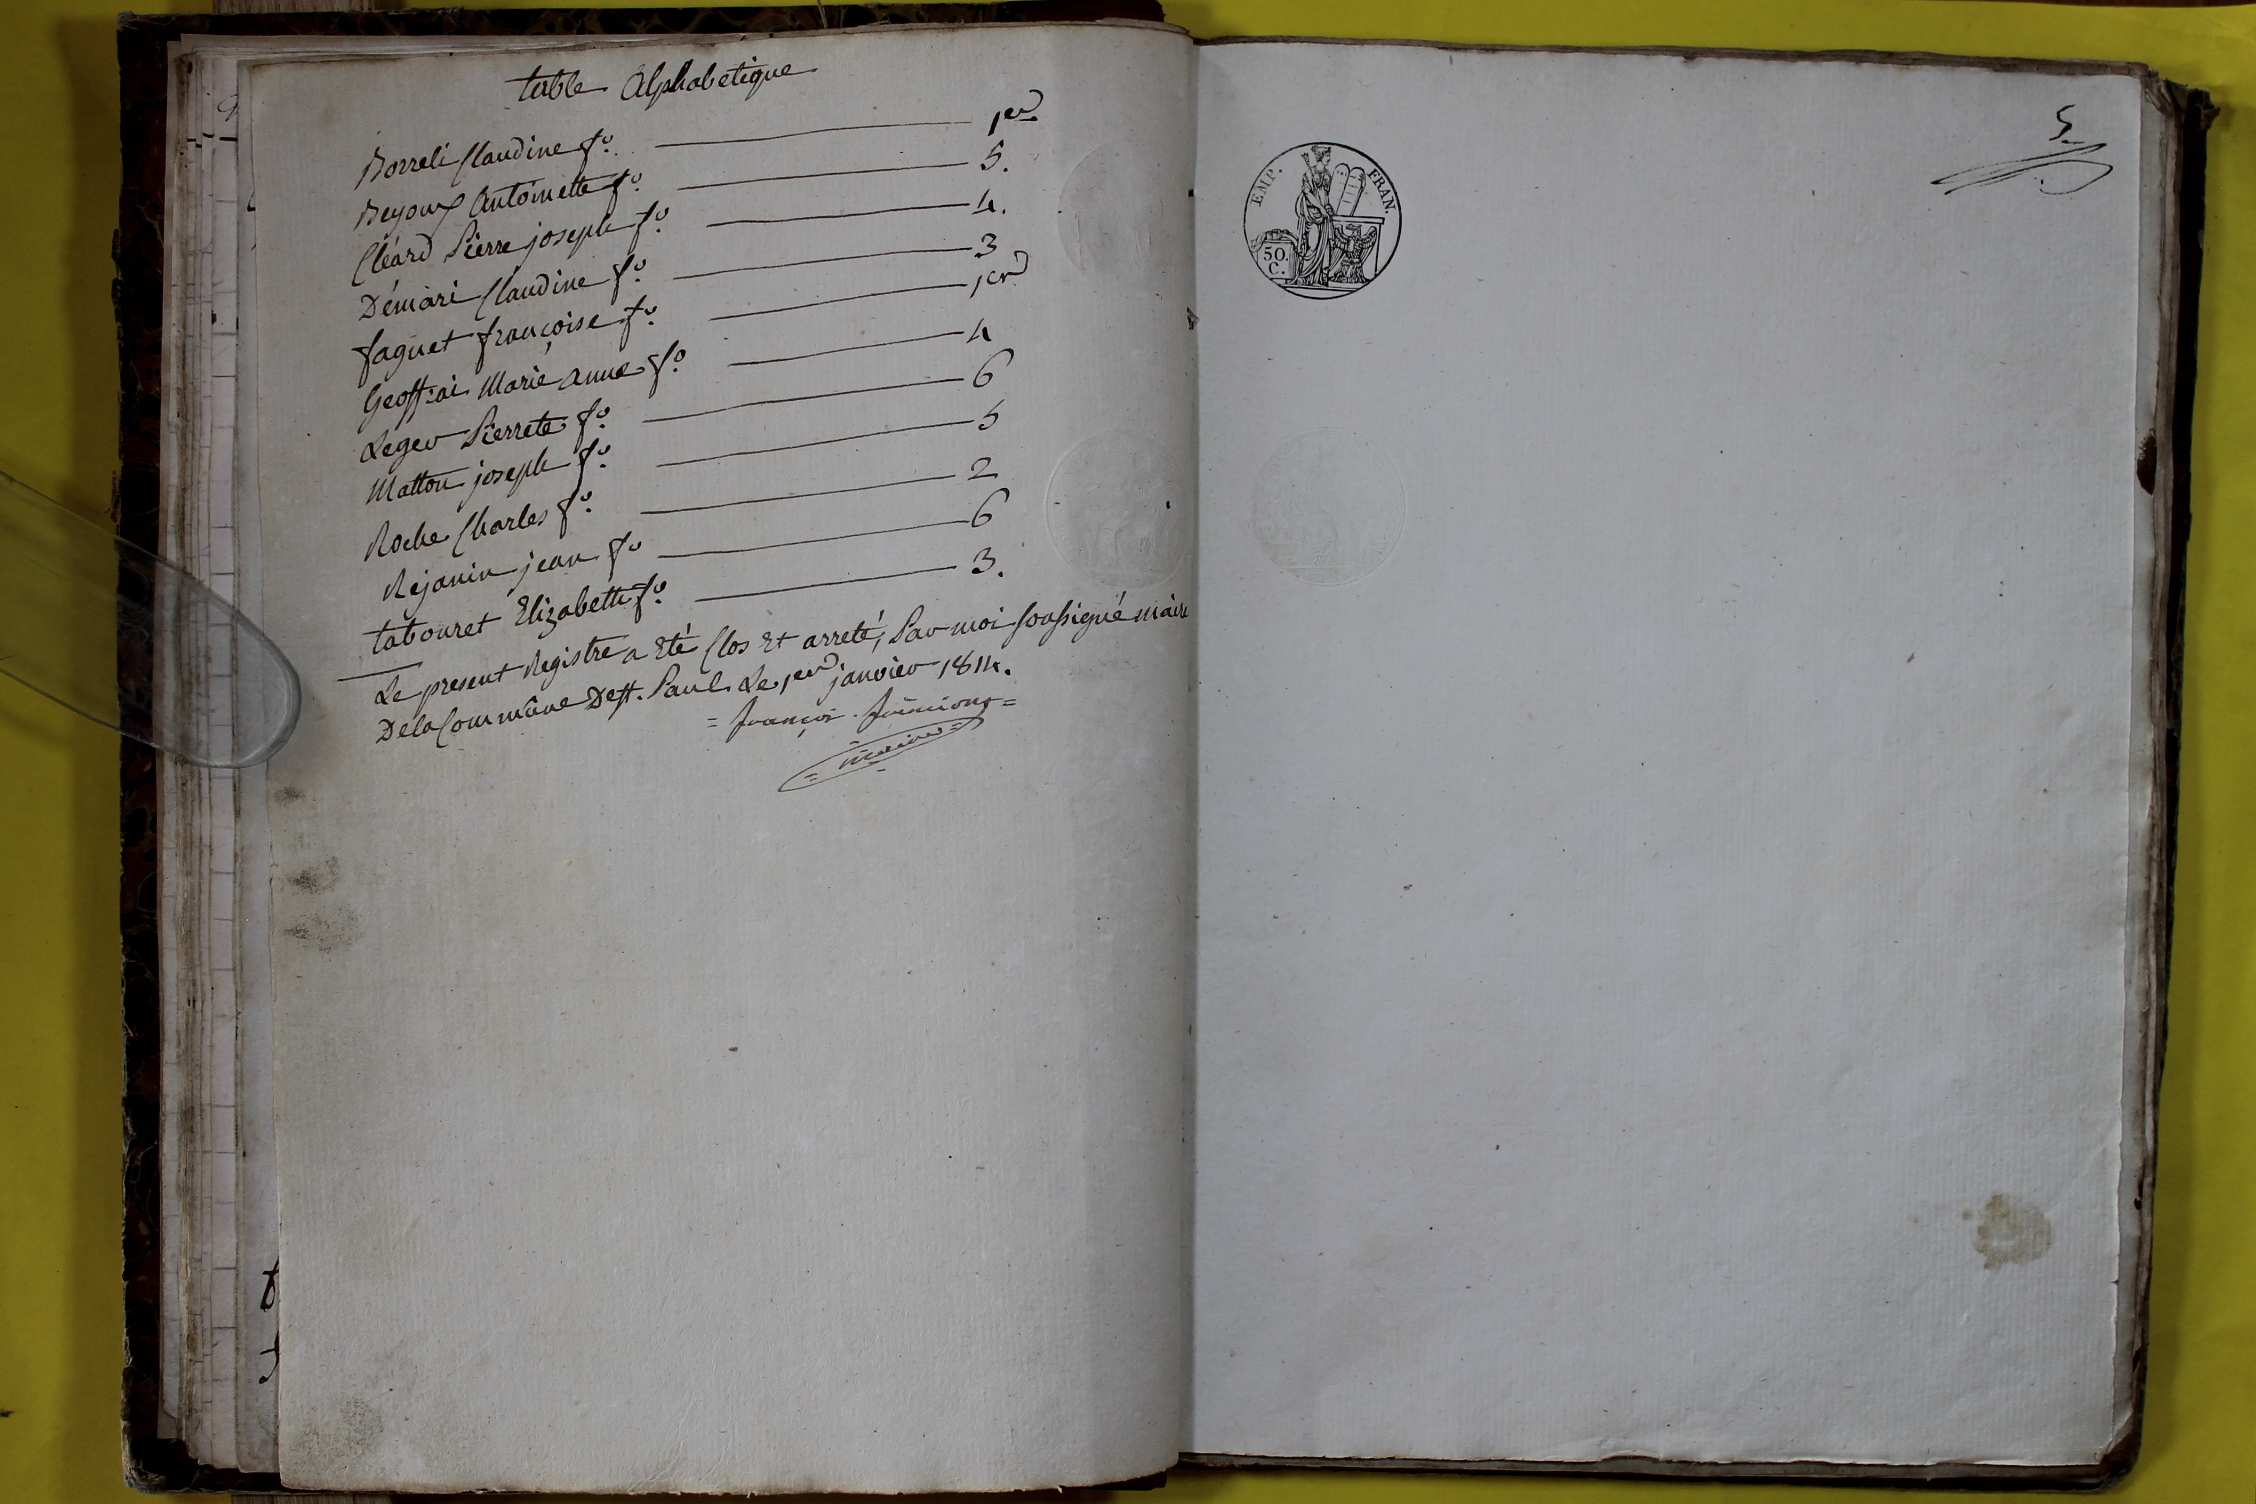 table Alphabetique
Borreli Claudine fo. 1er
Beyoux Antoinette fo. 5.
Cléard Pierre joseph fo. 4.
Démari Claudine fo. 3
faguet françoise fo. 1er
Geoffrai Marie anne fo. 4
Leger Pierrete fo. 6
Matton joseph fo. 5
Roche Charles fo. 2
Rejanin jean fo 6
tabouret Elizabette fo. 3.
Le present Registre a Eté Clos Et arreté, Par moi soussigné maire
De la Commûne De st. Paul Le 1er janvier 1814.
= françoi
maire =
5
EMP. FRAN.
50.
C.